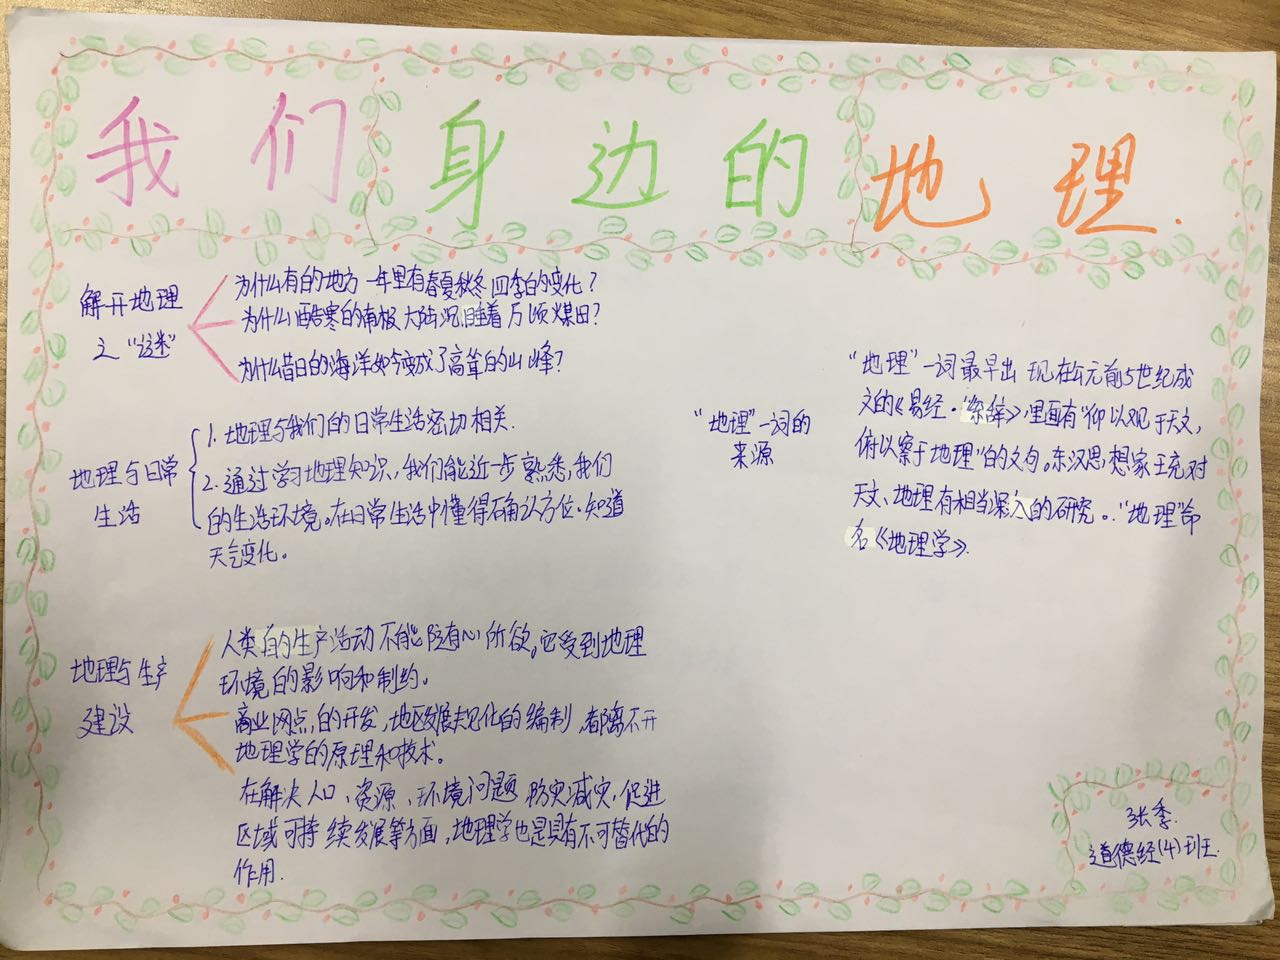 我们身边的地理.
解开地理
之“谜”
为什么有的地方一年里有春夏秋冬四季的变化?
为什么酷寒的南极大陆沉睡着万顷煤田?
为什么昔日的海洋如今变成了高耸的山峰?
地理与日常
生活
1. 地理与我们的日常生活密切相关.
2.通过学习地理知识,我们能近一步熟悉,我们
的生活环境。在日常生活中懂得确认方位。知道
天气变化。
地理与生产
建设
人类的生产活动不能随有心所欲,它受到地理
环境的影响和制约。
商业网点的开发,地区发展规化的编制,都离不开
地理学的原理和技术。
在解决人口、资源、环境问题防灾减灾,促进
区域可持续发展等方面,地理学也是具有不可替代的
作用.
“地理”一词的
来源
“地理”一词最早出现在公元前5世纪成
文的《易经·系辞》,里面有“仰以观于天文,
俯以察于地理”的文句。东汉思想家王充对
天文、地理有相当深入的研究。“地理”命
名《地理学》.
张季.
道德经(4)班.